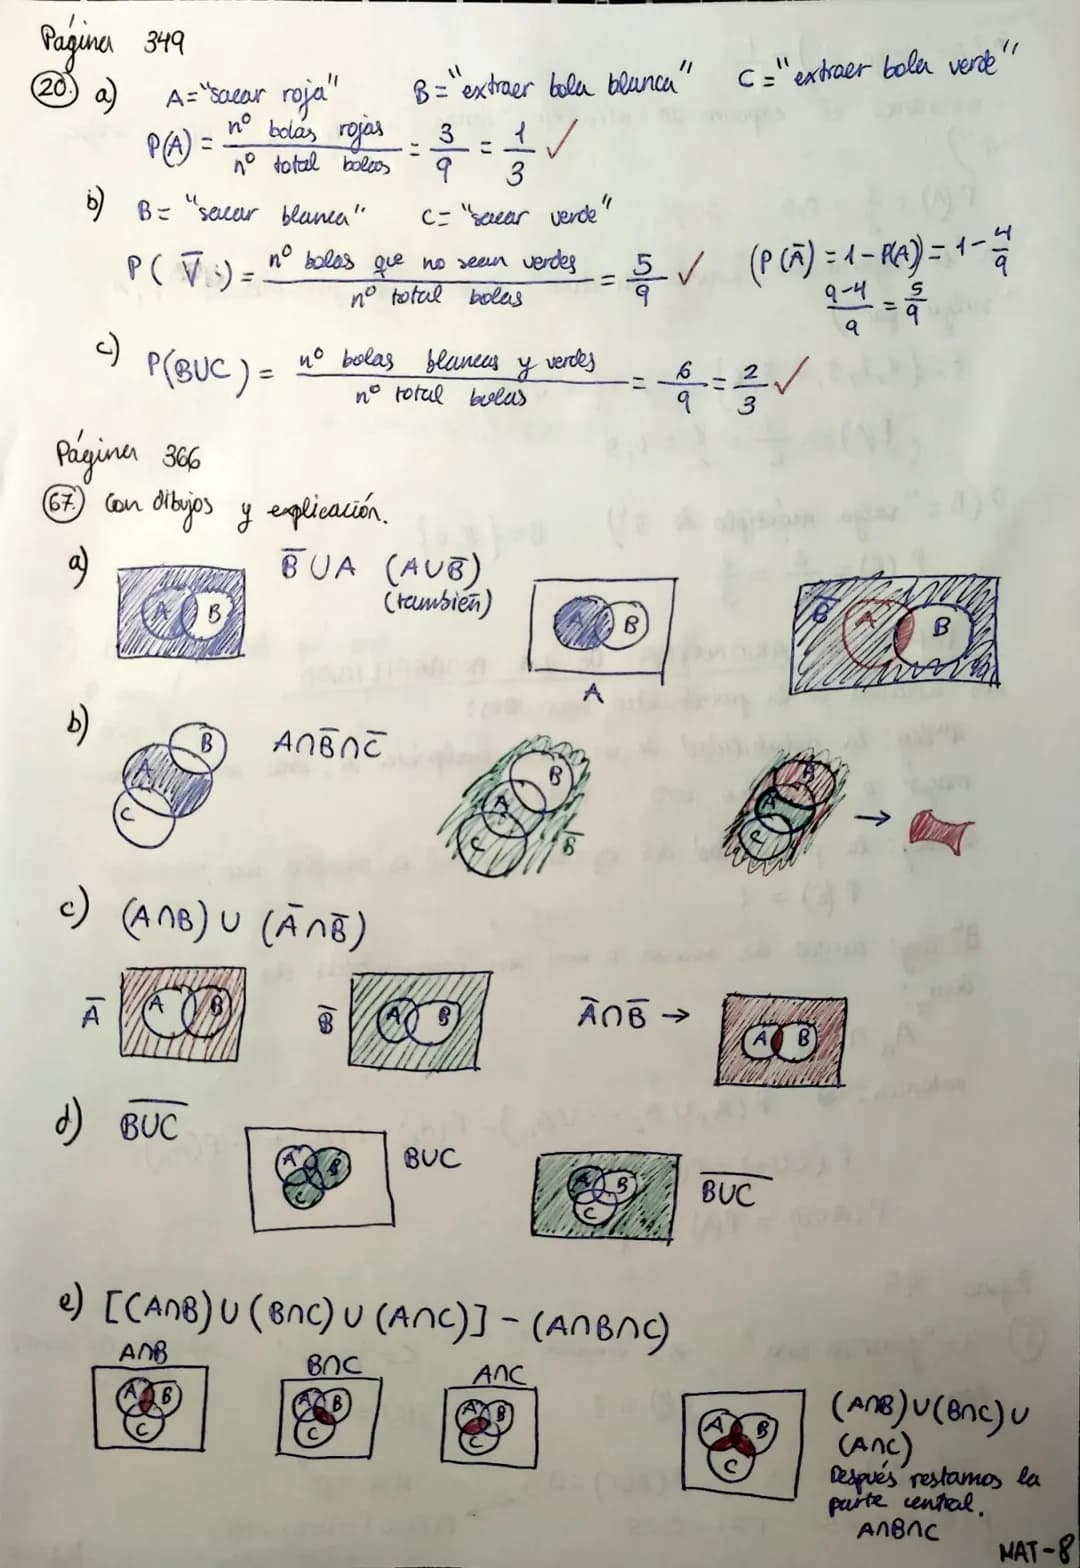 Página 349
20. a) A="sacar roja" B="extraer bola blanca" C="extraer bola verde"
P(A) = nº bolas rojas / nº total bolas = 3/9 = 1/3 ✓
b) B= "sacar blanca" C= "sacar verde"
P( V̅ ) = nº bolas que no sean verdes / nº total bolas = 5/9 ✓ (P(A̅) = 1-P(A)) = 1-4/9
9-4/9 = 5/9
c) P(B∪C) = nº bolas blancas y verdes / nº total bolas = 6/9 = 2/3 ✓
Página 366
67. Con dibujos y explicación.
a) B̅∪A (A∪B̅)
(también)
A B
A B
A
B̅ A B
b) A∩B̅∩C̅
A B C
A B C B̅
B A C →
c) (A∩B) ∪ (A̅∩B̅)
A̅ A B
B̅ A B
A̅∩B̅ → A B
d) B∪C̅
A B C B∪C
A B C B∪C̅
e) [(A∩B)∪(B∩C)∪(A∩C)] - (A∩B∩C)
A∩B
A B C
B∩C
A B C
A∩C
A B C
A B C
(A∩B)∪(B∩C)∪
(A∩C)
Después restamos la
parte central.
A∩B∩C
MAT-8